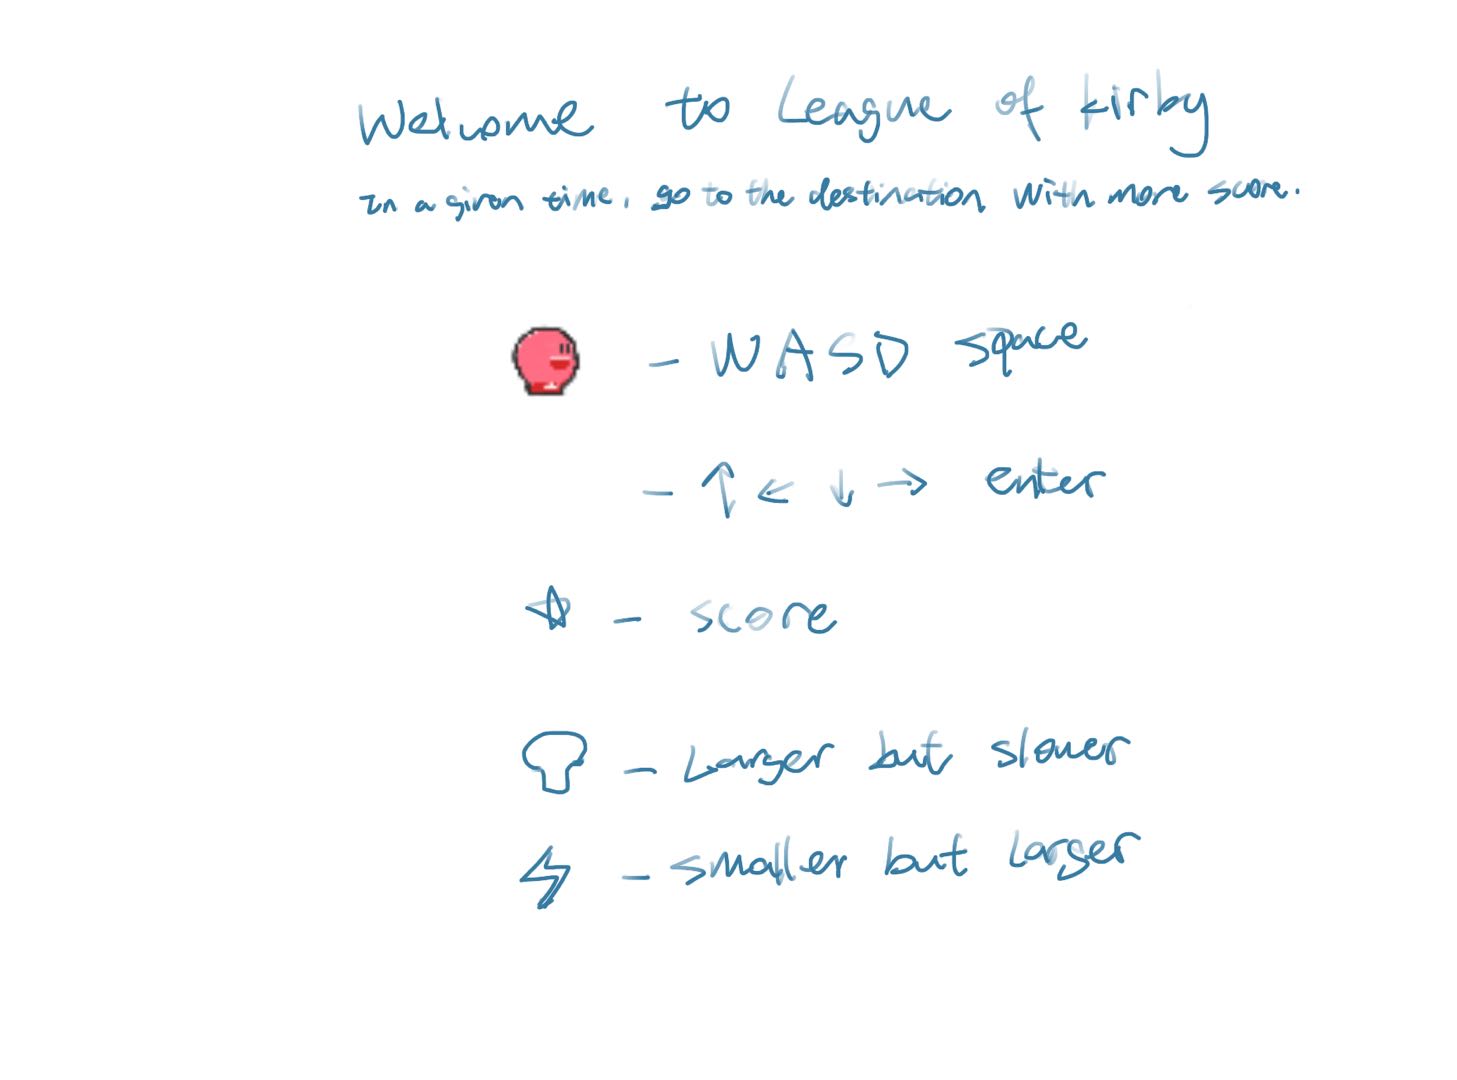 Welcome to League of kirby
In a given time, go to the destination with more score.
- WASD space
- ↑ ← ↓ → enter
- score
- Larger but slower
- smaller but Larger